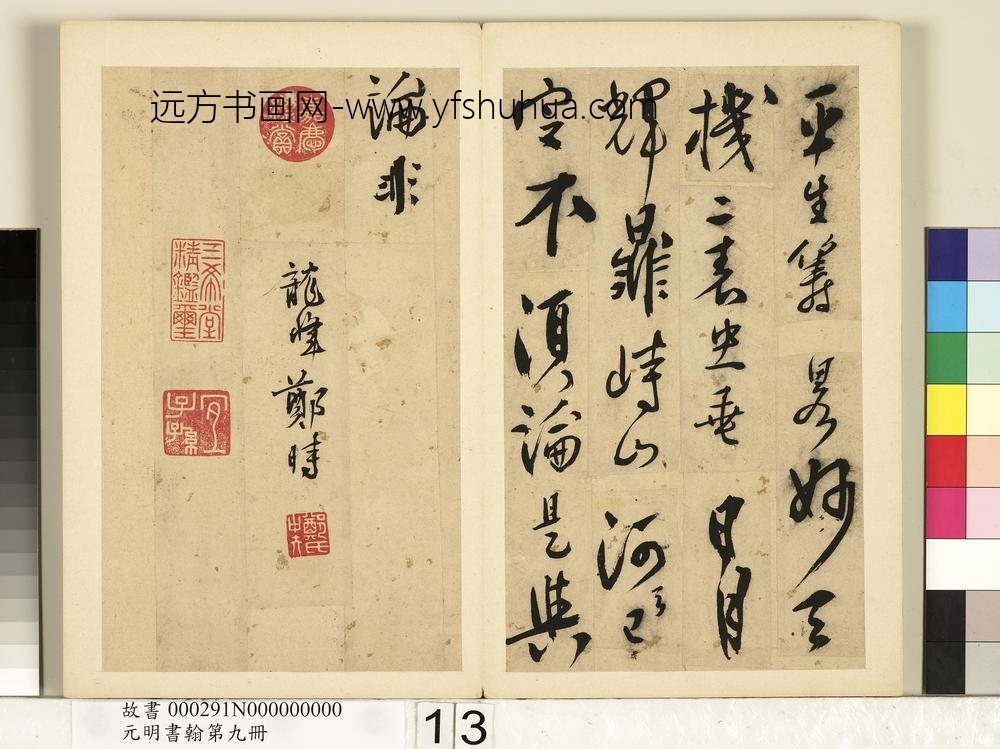 远方书画网-www.yfshuhua.com
平生籌畧妙天
機二表忠垂日月
輝鼎峙山河已
空不須論是與
論非
龍峰鄭時
三希堂
精鑑璽
宜
子孫
故書 000291N000000000
元明書翰第九冊
13